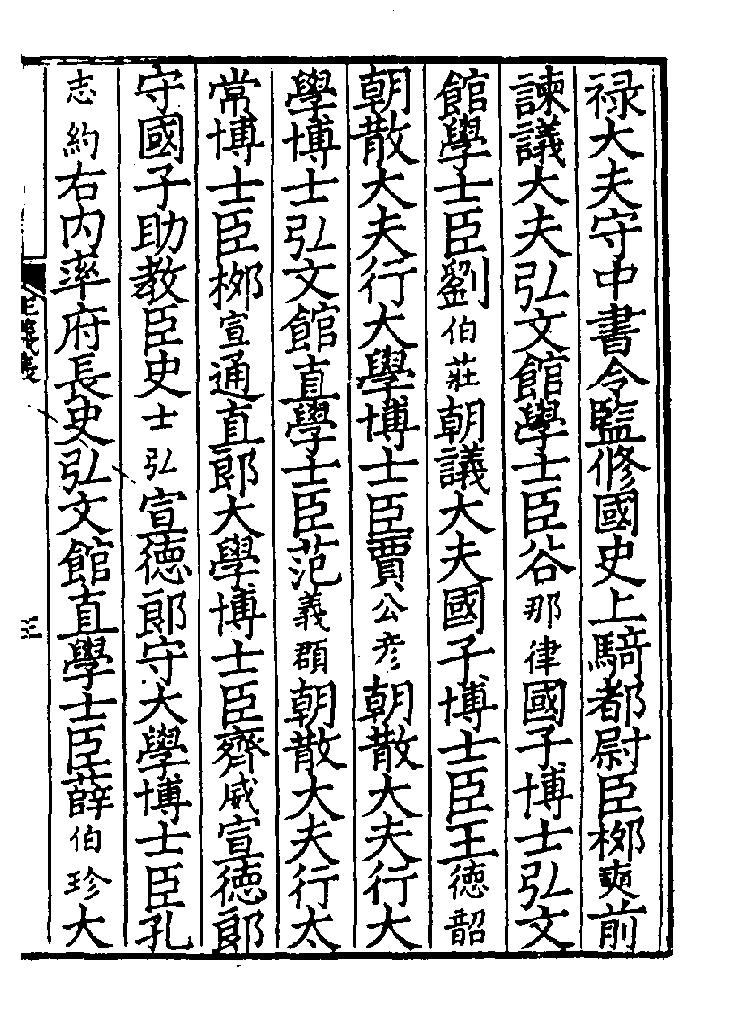 禄大夫守中書令監修國史上騎都尉臣桞奭前
諫議大夫弘文館學士臣谷那律國子博士弘文
館學士臣劉伯莊朝議大夫國子博士臣王德韶
朝散大夫行大學博士臣賈公彦朝散大夫行大
學博士弘文館直學士臣范義頵朝散大夫行太
常博士臣桞宣通直郎大學博士臣齊威宣德郎
守國子助教臣史士弘宣德郎守大學博士臣孔
志約右内率府長史弘文館直學士臣薛伯珍大